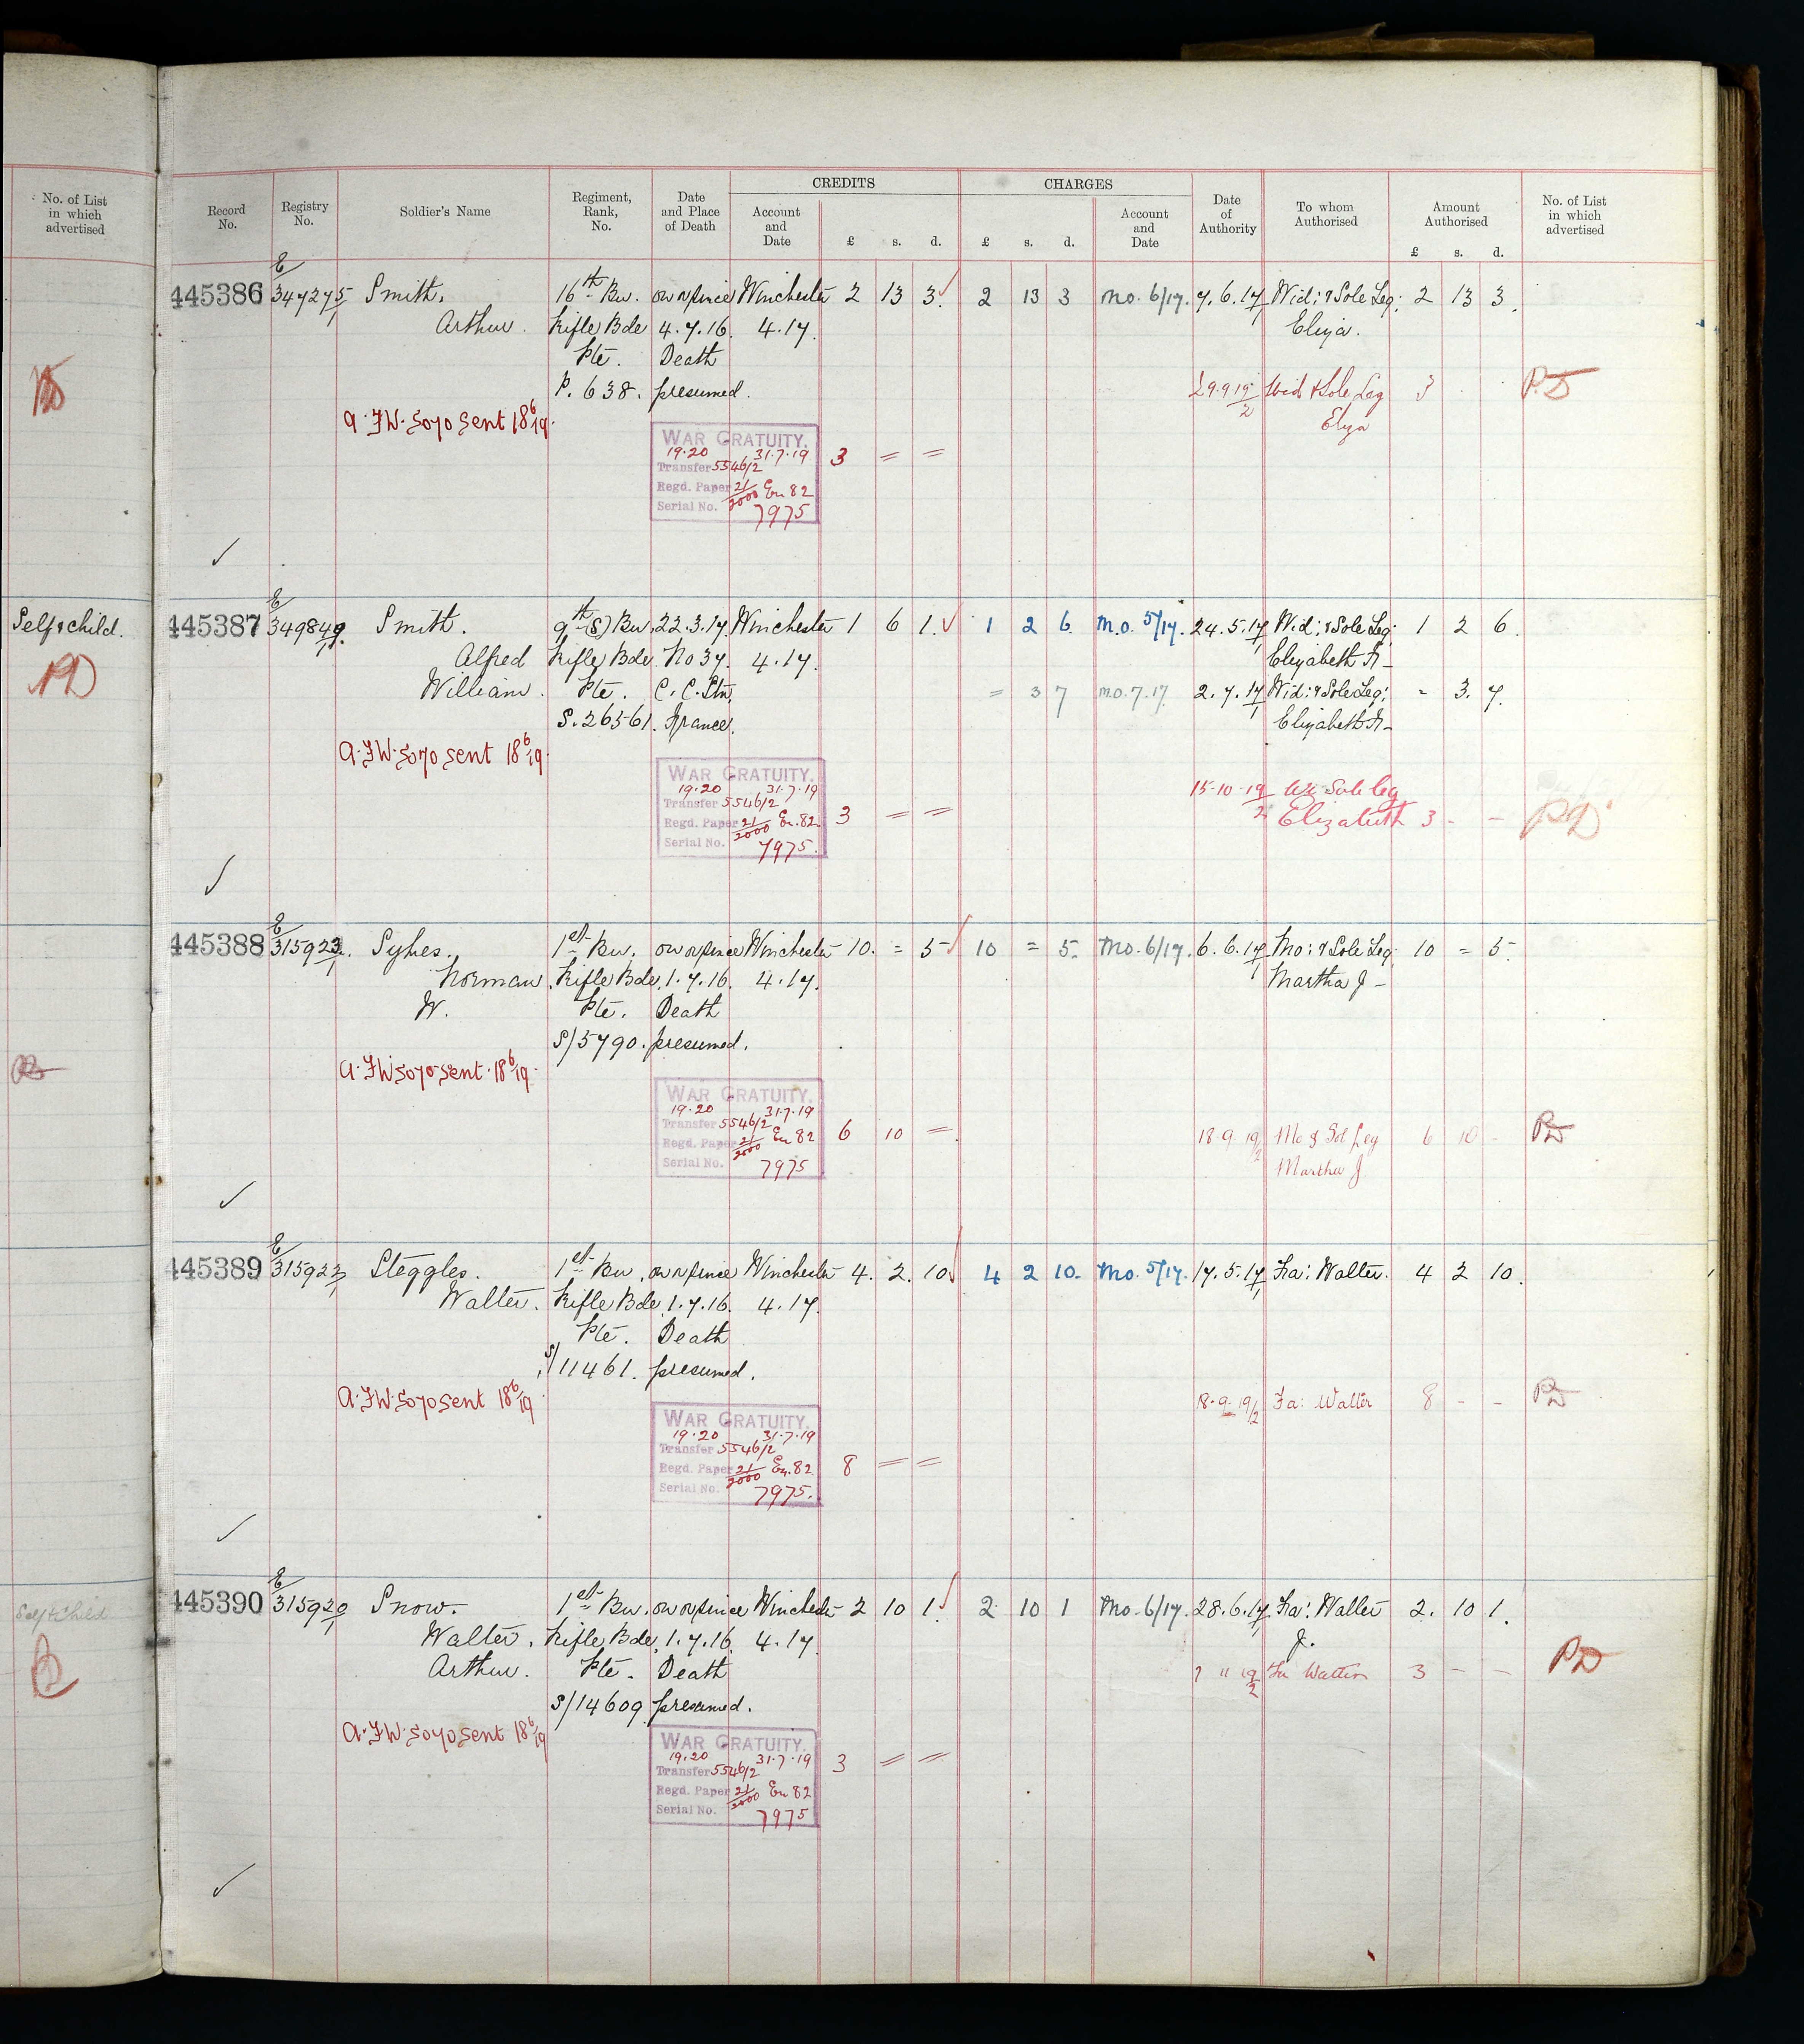 No. of List
in which
advertised
Self & child.
PD
Self & child
Record
No.
Registry
No.
Soldier's Name
Regiment,
Rank,
No.
Date
and Place
of Death
CREDITS
Account
and
Date
£ s. d.
CHARGES
£ s. d.
Account
and
Date
Date
of
Authority
To whom
Authorised
Amount
Authorised
£ s. d.
No. of List
in which
advertised
445386 E/347275/1 Smith, 16th Bn. on or since Winchester 2 13 3 2 13 3 Mo. 6/17. 7.6.17/1 Wid: & Sole Leg: 2 13 3.
Arthur. Rifle Bde 4.7.16. 4.17. Eliza.
Pte. Death
P. 638. presumed. 29.9.19/2 Wid & Sole Leg 3 P.D
A.F.W. 5070 Sent 18/6/19. Eliza
WAR GRATUITY.
19.20 31.7.19
Transfer 5546/2 3 = =
Regd. Paper 21/2000 En 82
Serial No. 7975
445387 E/349849/1. Smith. 9th (S) Bn. 22.3.17. Winchester 1 6 1. 1 2 6 M.O. 5/17. 24.5.17/1 Wid: & Sole Leg: 1 2 6.
Alfred Rifle Bde No 37. 4.17. Elizabeth A -
William. Pte. C.C. Stn, = 3 7 M.O. 7.17. 2.7.17/1 Wid: & Sole Leg: - 3. 7.
S. 26561. France. Elizabeth A -
A.F.W. 5070 Sent 18/6/19.
WAR GRATUITY.
19.20 31.7.19 15.10.19/2 Wi Sole Leg
Transfer 5546/2 3 = = Elizabeth 3 - - PD
Regd. Paper 21/2000 En. 82
Serial No. 7975.
445388 E/315923/1. Sykes. 1st Bn. on or since Winchester 10. = 5 10 = 5. Mo. 6/17. 6.6.17/1 Mo: & Sole Leg: 10 = 5.
Norman. Rifle Bde. 1.7.16. 4.17. Martha J -
W. Pte. Death
S/5790. presumed.
A.F.W 5070 Sent. 18/6/19.
WAR GRATUITY.
19.20 31.7.19
Transfer 5546/2 6 10 = 18.9.19/2 Mo & Sol Leg 6 10 - PD
Regd. Paper 21/2000 En 82 Martha J
Serial No. 7975
445389 Steggles. 1st Bn. on or since Winchester 4. 2. 10 4 2 10. Mo. 5/17. 17.5.17/1 Fa: Walter. 4 2 10.
Walter. Rifle Bde. 1.7.16. 4.17.
Pte. Death
S/11461. presumed.
A.F.W. 5070 Sent 18/6/19 18.9.19/2 Fa: Walter 8 - - PD
WAR GRATUITY.
19.20 31.7.19
Transfer 5546/2 8 = =
Regd. Paper 21/2000 En. 82
Serial No. 7975.
445390 E/315920/1 Snow. 1st Bn. on or since Winchester 2 10 1. 2 10 1 Mo. 6/17. 28.6.17/1 Fa: Walter 2. 10 1.
Walter. Rifle Bde. 1.7.16. 4.17 J.
Arthur. Pte. Death 11 19/2 Fa Walter 3 - - PD
S/14609 presumed.
A.F.W. 5070 Sent 18/6/19
WAR GRATUITY.
19.20 31.7.19
Transfer 5546/2 3 = =
Regd. Paper 21/2000 En 82
Serial No. 7975